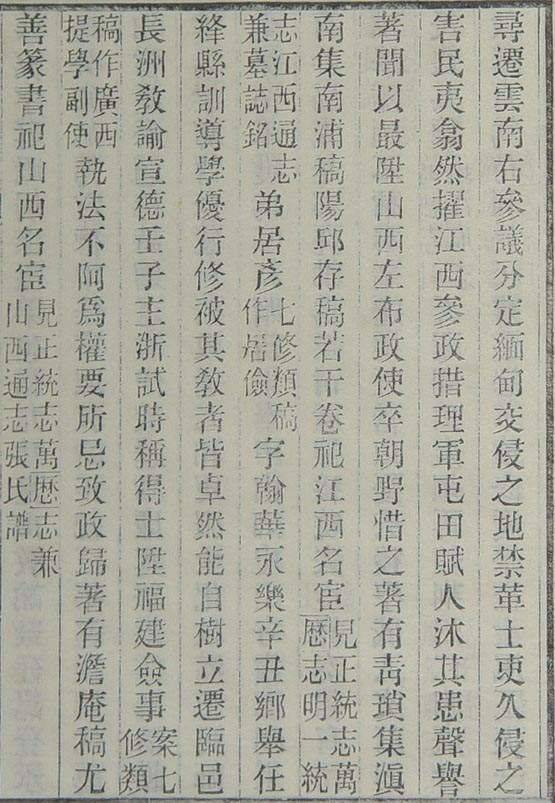 尋遷雲南右參議分定緬甸交侵之地禁革土吏久侵之
害民夷翕然擢江西參政措理軍屯田賦人沐其惠聲譽
著聞以最陞山西左布政使卒朝野惜之著有靑瑣集滇
南集南浦稿陽邱存稿若干卷祀江西名宦見正統志萬
歷志明一統
志江西通志
兼墓誌銘弟居彥七修類稿
作居儉字翰華永樂辛丑鄉舉任
絳縣訓導學優行修被其敎者皆卓然能自樹立遷臨邑
長洲敎諭宣德壬子主浙試時稱得士陞福建僉事案七
修類
稿作廣西
提學副使執法不阿爲權要所忌致政歸著有澹庵稿尤
善篆書祀山西名宦見正統志萬歷志兼
山西通志張氏譜